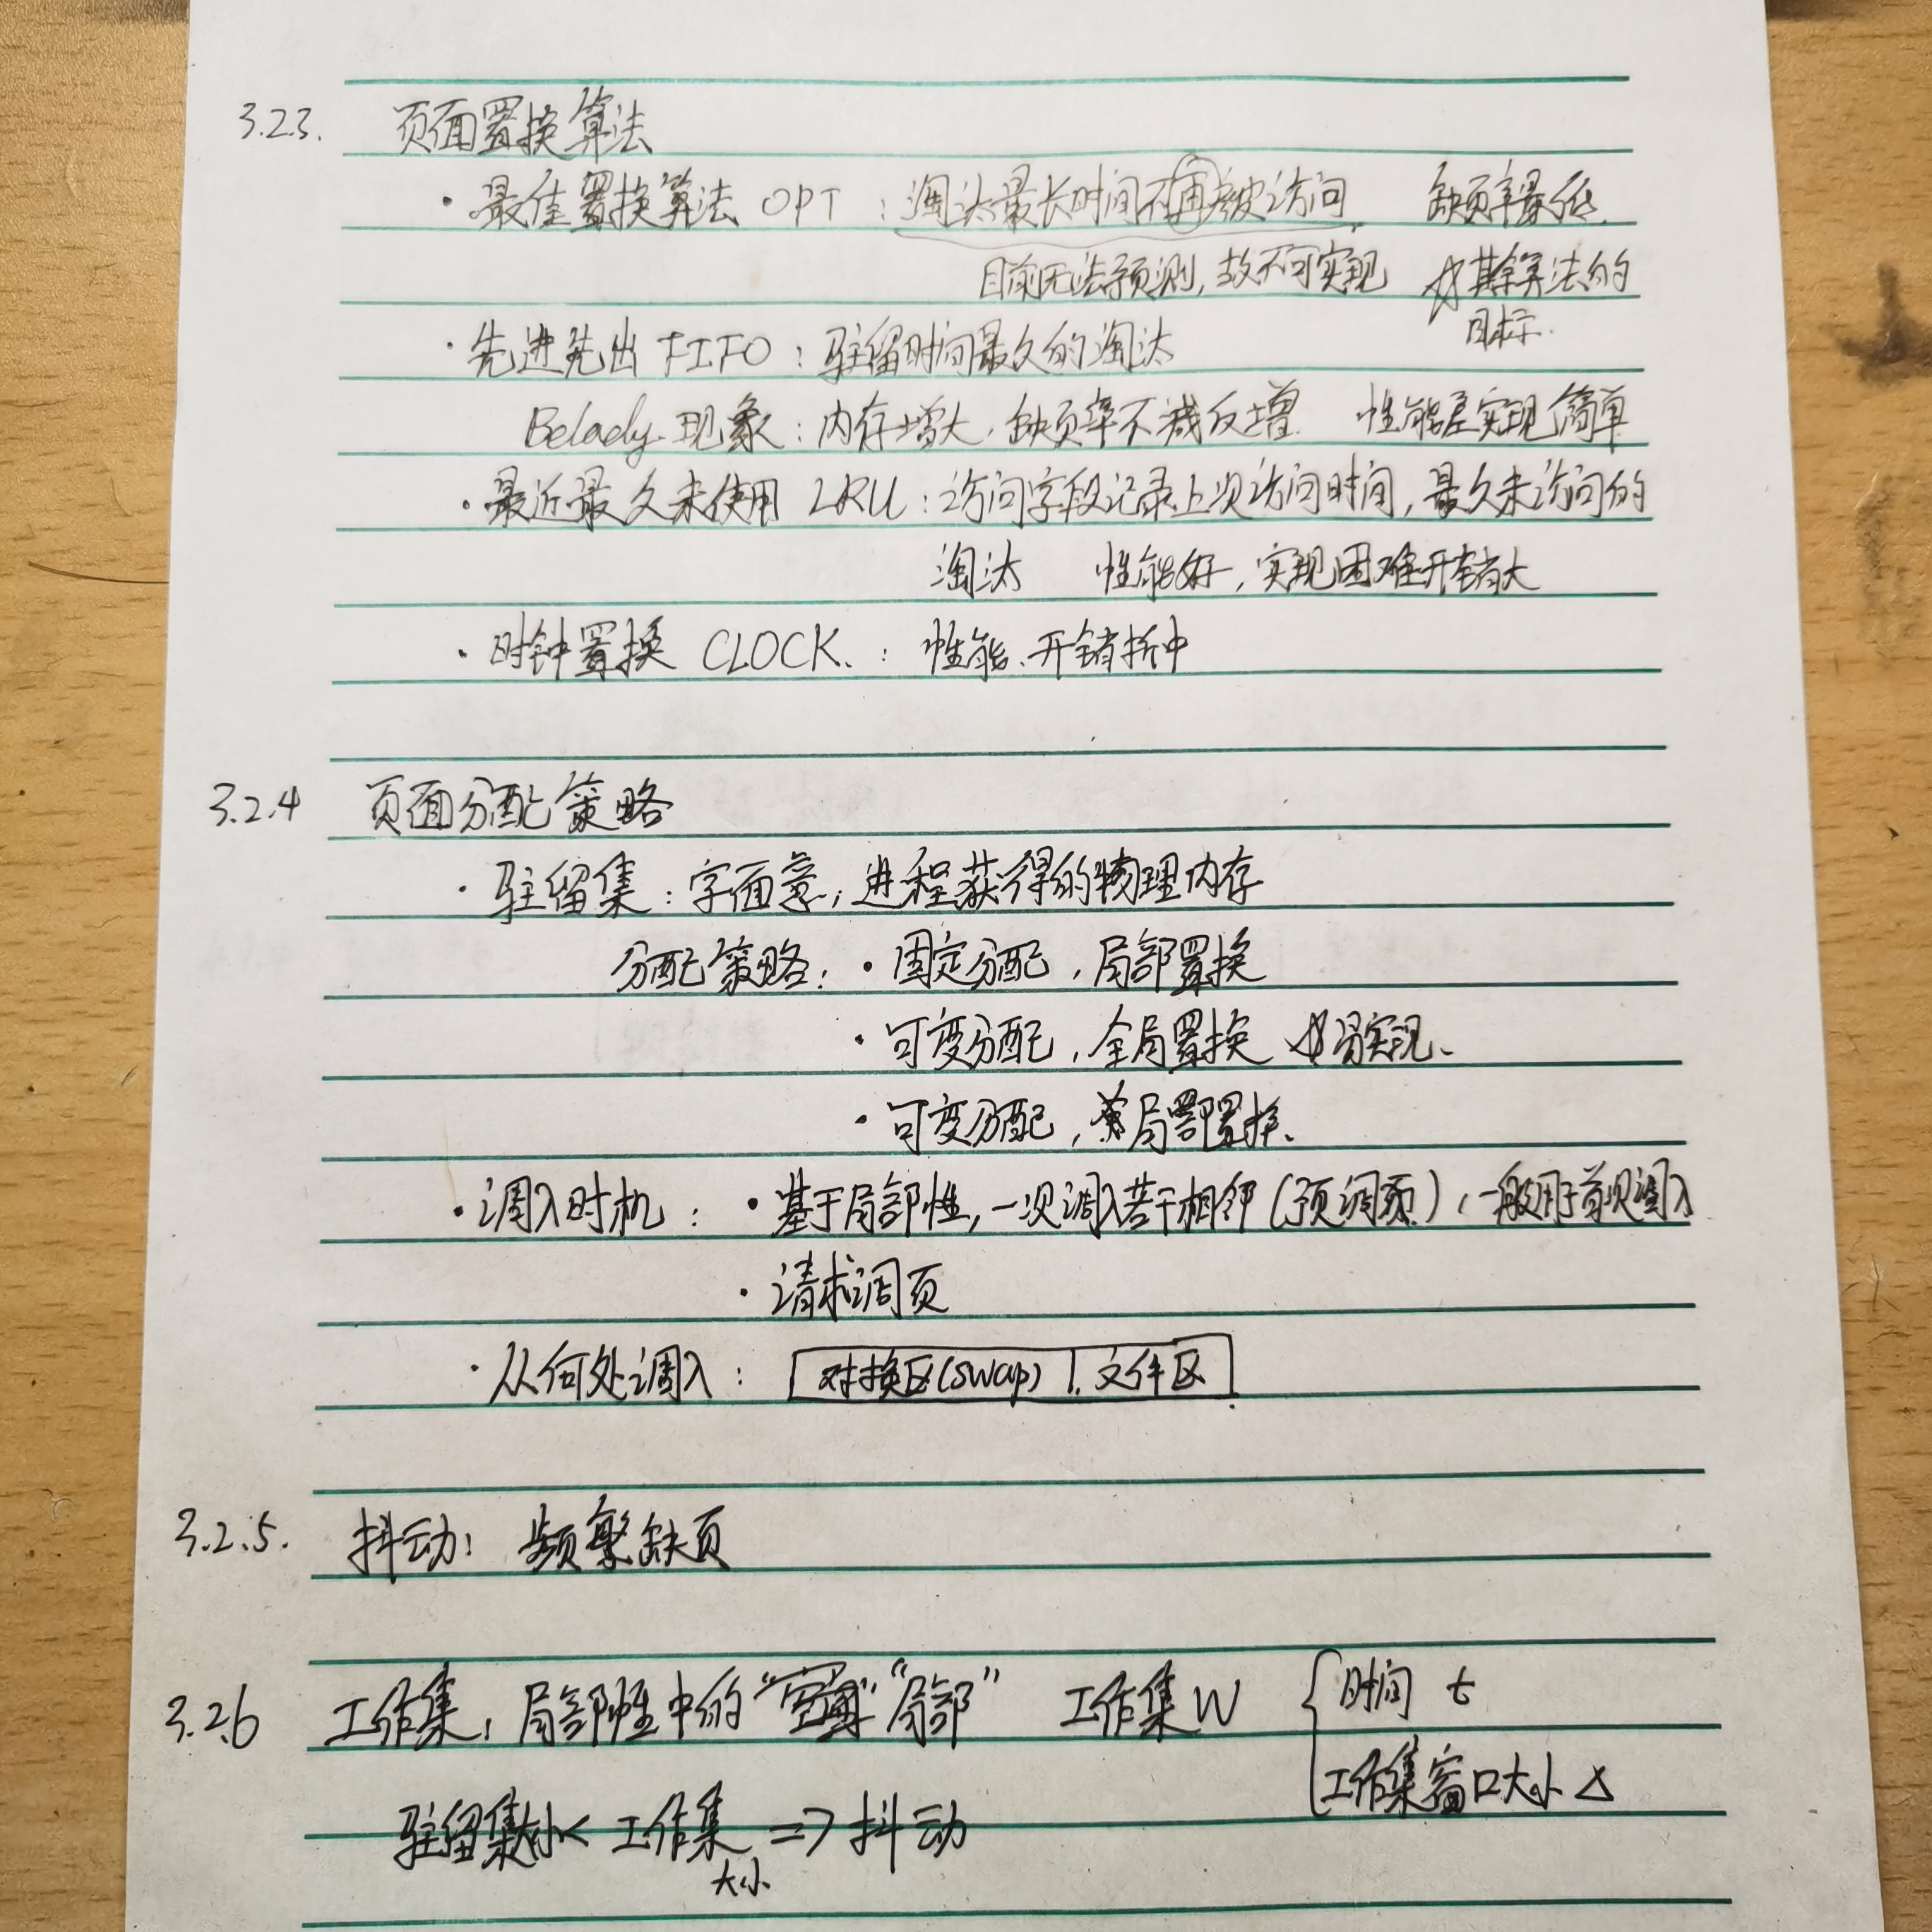 3.2.3. 页面置换算法
· 最佳置换算法 OPT : 淘汰最长时间不再被访问. 缺页率最低.
目前无法预测, 故不可实现 为其余算法的
目标.
· 先进先出 FIFO : 驻留时间最久的淘汰
Belady 现象 : 内存增大, 缺页率不减反增. 性能差实现简单
· 最近最久未使用 LRU : 访问字段记录上次访问时间, 最久未访问的
淘汰 性能好, 实现困难开销大
· 时钟置换 CLOCK. : 性能、开销折中
3.2.4 页面分配策略
· 驻留集 : 字面意, 进程获得的物理内存
分配策略: · 固定分配, 局部置换
· 可变分配, 全局置换 易实现.
· 可变分配, 局部置换.
· 调入时机 : · 基于局部性, 一次调入若干相邻 (预调页), 一般用于首次调入
· 请求调页
· 从何处调入 : 对换区(swap) 文件区
3.2.5. 抖动: 频繁缺页
3.2.6 工作集: 局部性中的 "局部" 工作集 W { 时间 t
工作集窗口大小 Δ
驻留集大小 < 工作集大小 => 抖动